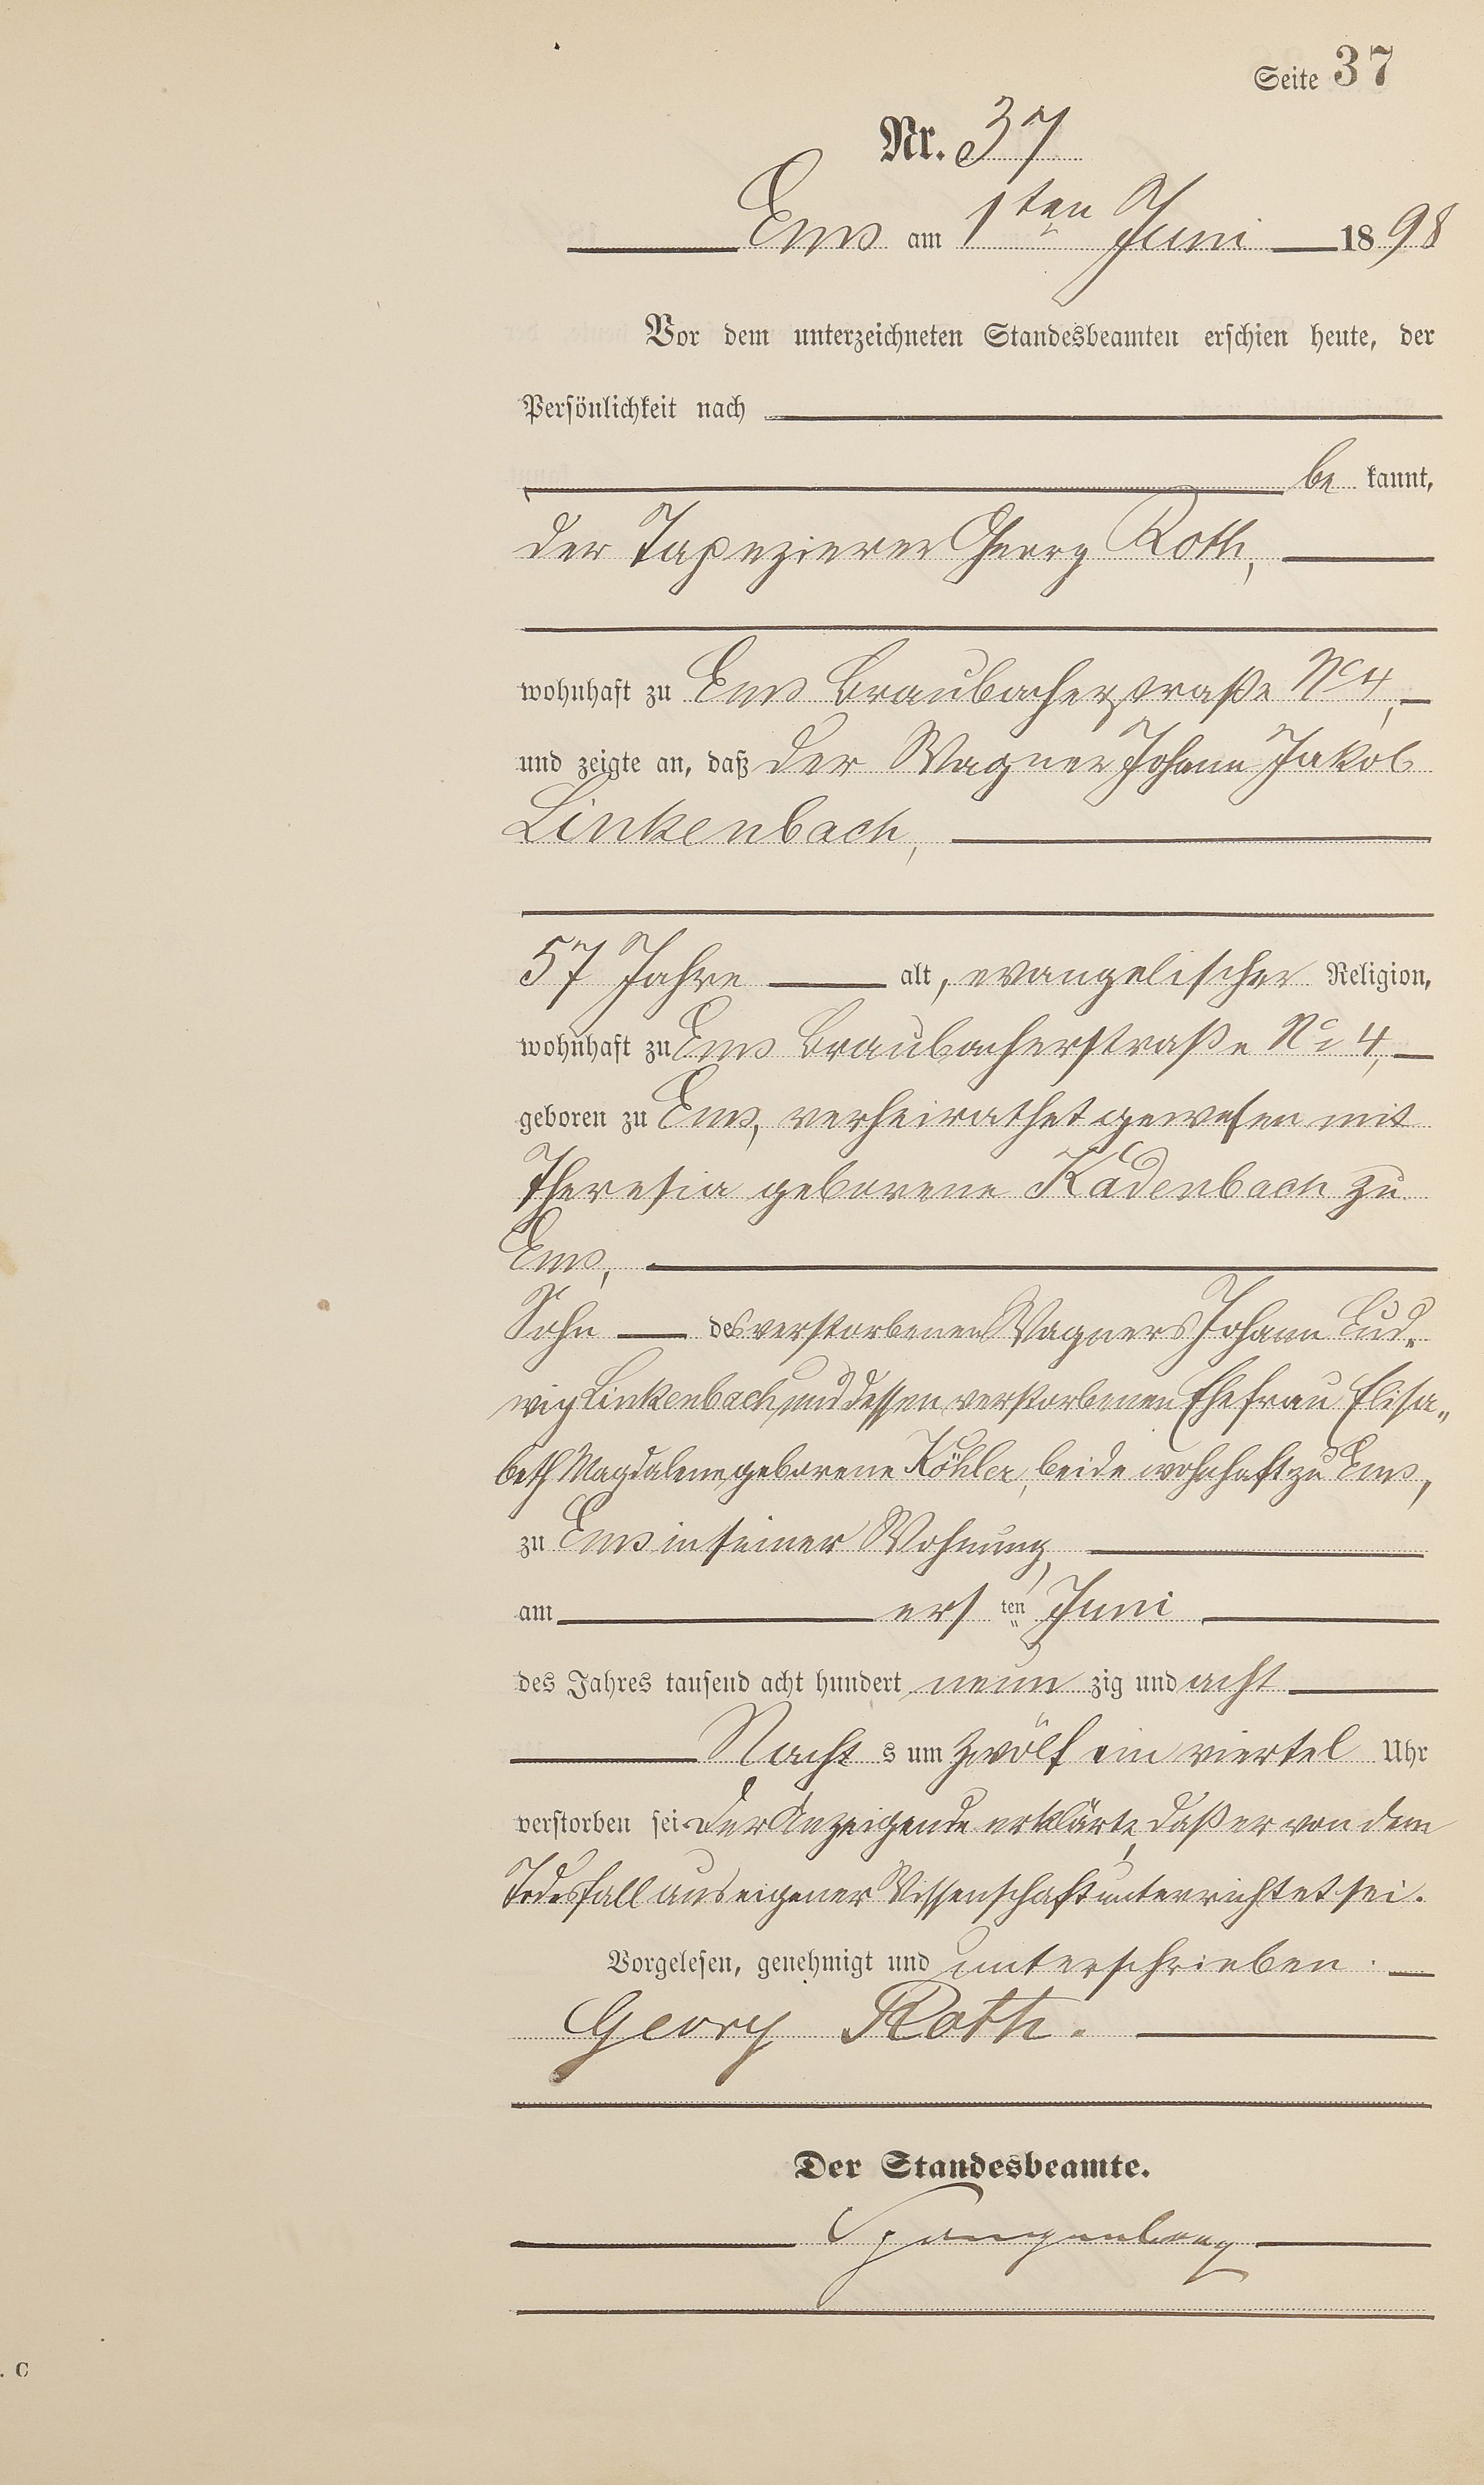 Seite 37
Nr. 37
Ems am 1ten Juni 1898
Vor dem unterzeichneten Standesbeamten erschien heute, der
Persönlichkeit nach
be kannt,
der Tapezierer Georg Roth,
wohnhaft zu Ems Braubacherstraße No 4,
und zeigte an, daß der Wagner Johann Jakob
Linkenbach,
57 Jahre alt, evangelischer Religion,
wohnhaft zu Ems Braubacherstraße No 4,
geboren zu Ems, verheirathet gewesen mit
Theresia geborene Kadenbach zu
Ems,
Sohn des verstorbenen Wagners Johann Lud-
wig Linkenbach und dessen verstorbenen Ehefrau Elisa-
beth Magdalene geborene Köhler, beide wohnhaft zu Ems,
zu Ems in seiner Wohnung,
am ersten Juni
des Jahres tausend acht hundert neun zig und acht
Nacht s um zwölf ein viertel Uhr
verstorben sei. Der Anzeigende erklärte, daß er von dem
Todesfall aus eigener Wissenschaft unterrichtet sei.
Vorgelesen, genehmigt und unterschrieben.
Georg Roth.
Der Standesbeamte.
Spangenberg
. C